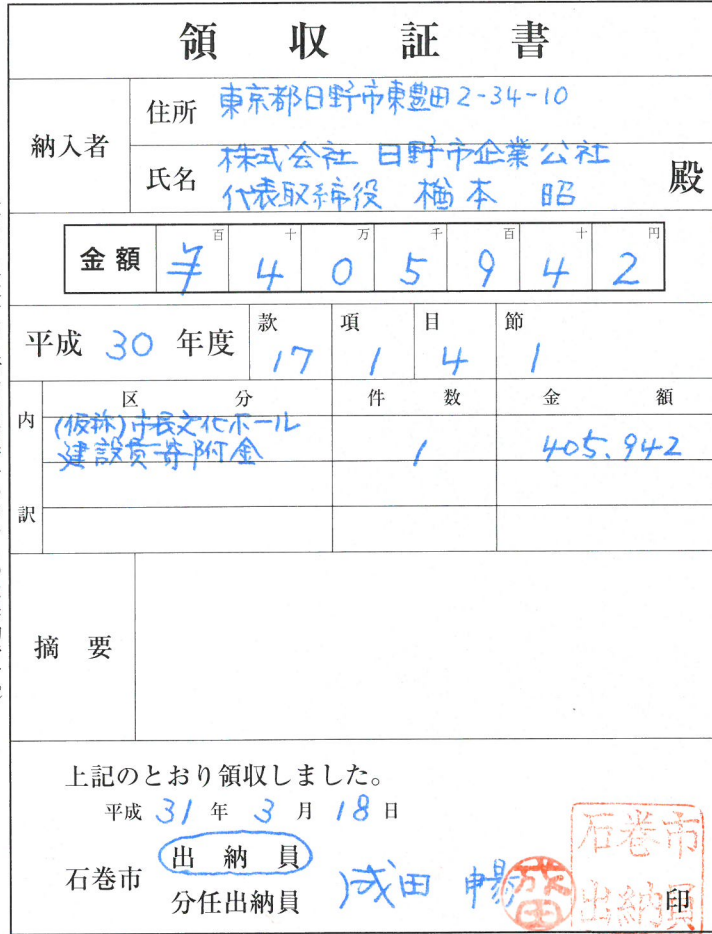 領収証書
納入者
住所 東京都日野市東豊田2-34-10
氏名 株式会社 日野市企業公社
代表取締役 楢本 昭 殿
金額 百 十 万 千 百 十 円
¥ 4 0 5 9 4 2
平成 30 年度 款 17 項 1 目 4 節 1
内訳
区分 件数 金額
(仮称)市民文化ホール
建設費寄附金 1 405,942
摘要
上記のとおり領収しました。
平成 31 年 3 月 18 日
石巻市 出納員
分任出納員
田 印
石巻市
出納員